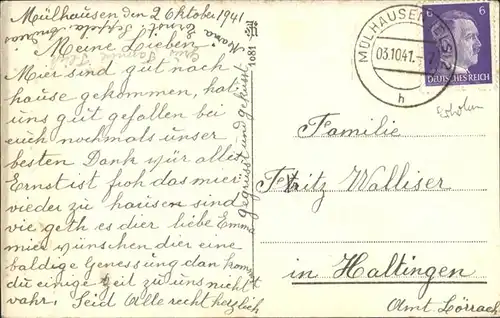 Mülhausen den 2 Oktober 1941
Meine Lieben
Mier sind gut nach-
hause gekommen, hat
uns gut gefallen bei
euch nochmals unser
besten Dank für alles
Ernst ist froh das mier
wieder zu hausen sind
wie geth es dier liebe Emma
mier wünschen dier eine
baldige Genessung dan kommst
du einige Zeit zu uns nicht
wahr. Seid Alle recht herzlich
gegrüsst und geküsst
Mama Ernst
1081
MÜLHAUSEN (ELS) 2
03.10.41.
h
6 6
DEUTSCHES REICH
Familie
Fritz Walliser
in Haltingen
Amt Lörrach